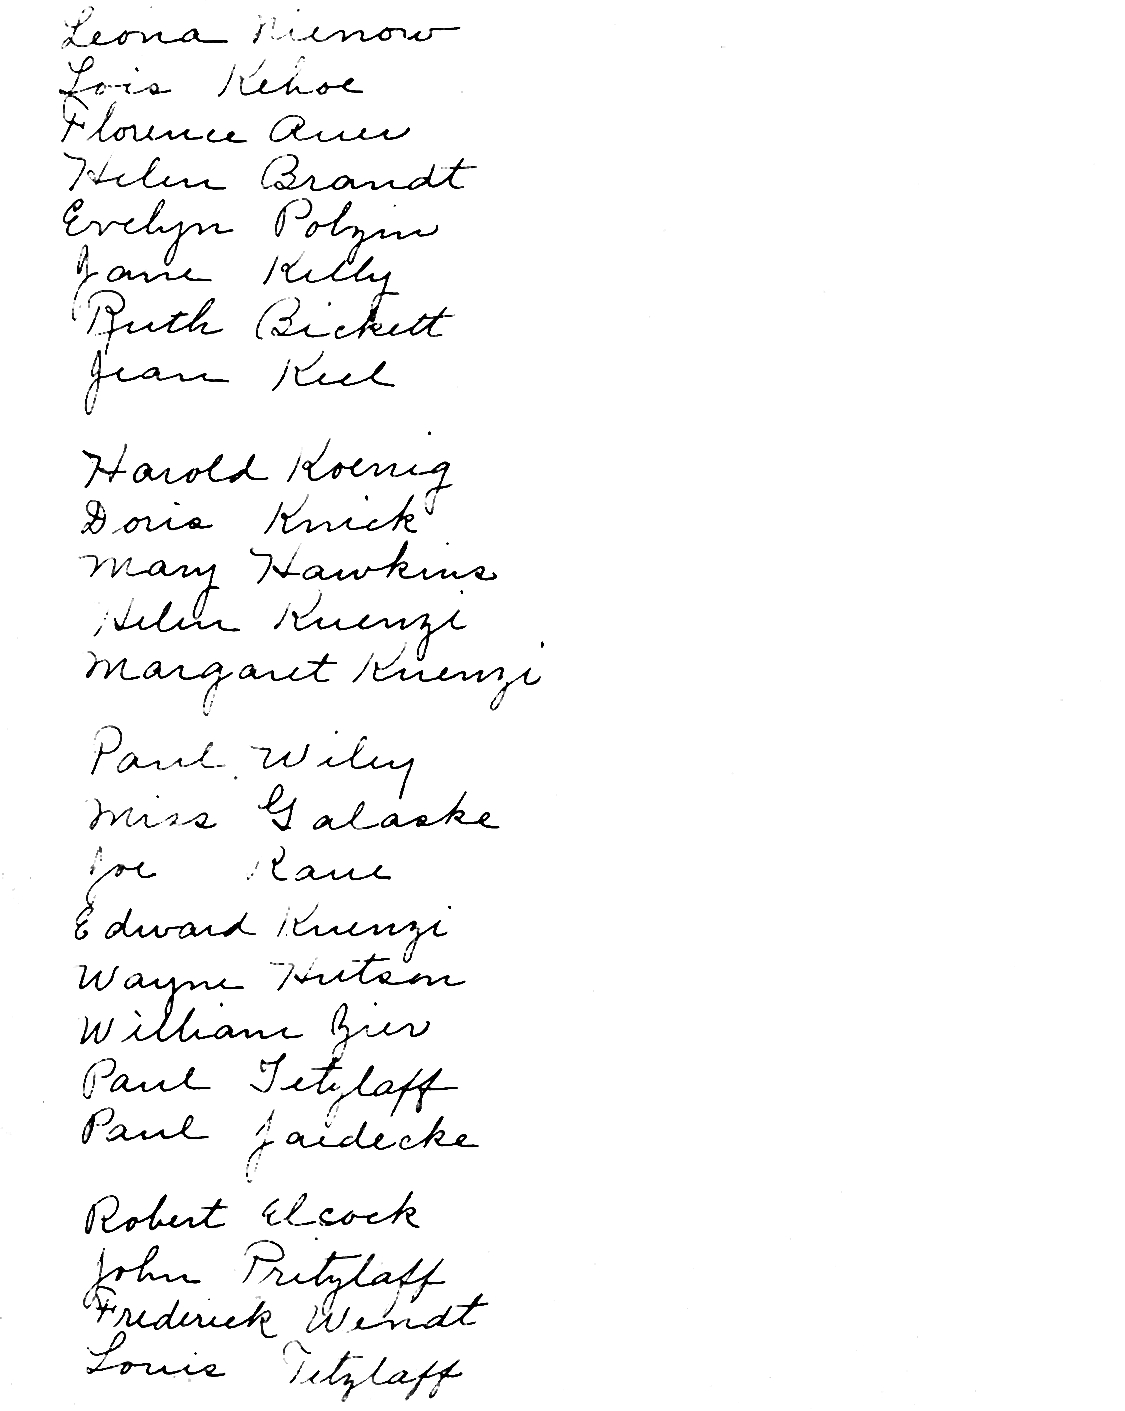 Leona Nienow
Lois Kehoe
Florence Auer
Helen Brandt
Evelyn Polzin
Jane Kelly
Ruth Bickett
Jean Keel
Harold Koenig
Doris Knick
Mary Hawkins
Helen Kuenzi
Margaret Kuenzi
Paul Wiley
Miss Galaske
Joe Kane
Edward Kuenzi
Wayne Hutson
William Zier
Paul Tetzlaff
Paul Jaedecke
Robert Elcock
John Pritzlaff
Frederick Wendt
Louis Tetzlaff